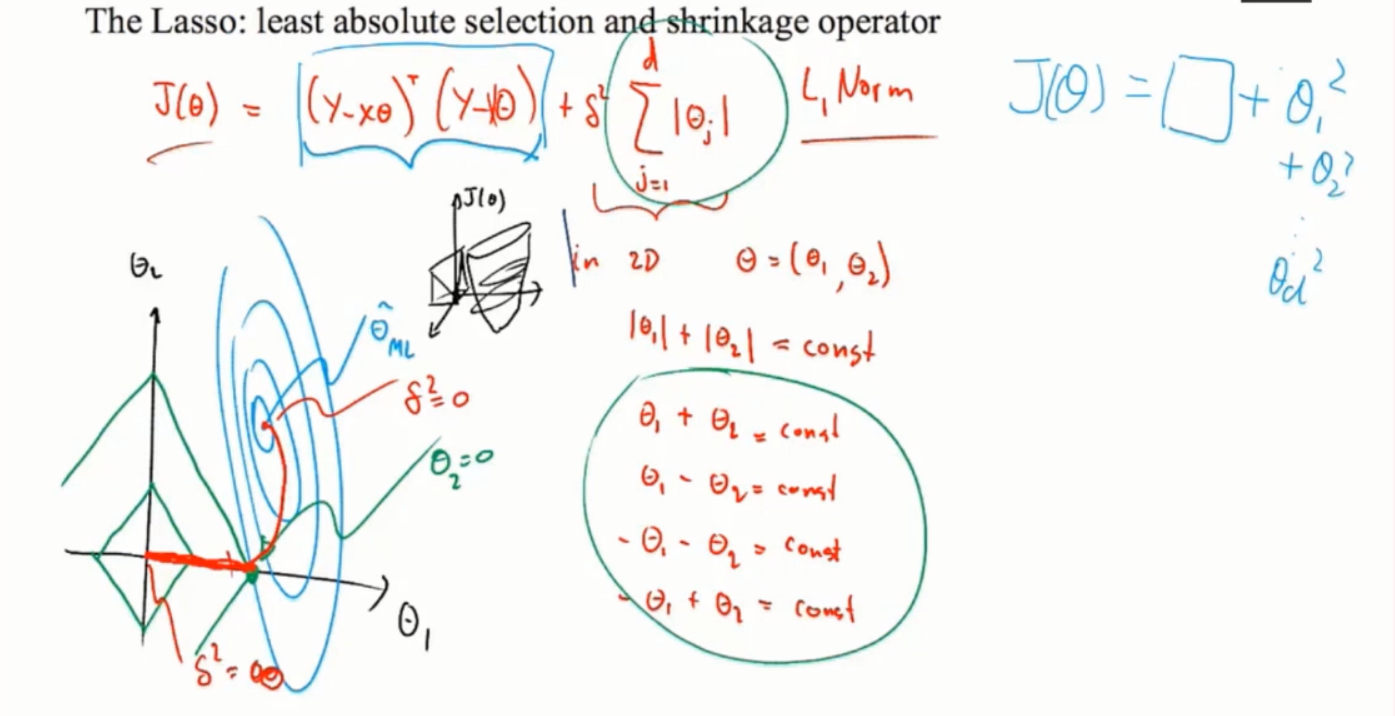 The Lasso: least absolute selection and shrinkage operator
J(θ) = (Y-Xθ)ᵀ (Y-Xθ) + δ² Σ |θⱼ| L₁ Norm
d
j=1
J(θ) = □ + θ₁²
+ θ₂²
⋮
θd²
J(θ)
in 2D θ = (θ₁, θ₂)
|θ₁| + |θ₂| = const
θ₁ + θ₂ = const
θ₁ - θ₂ = const
- θ₁ - θ₂ = const
- θ₁ + θ₂ = const
θ₂
θ̂ML
δ² = 0
θ₂ = 0
θ₁
δ² = ∞